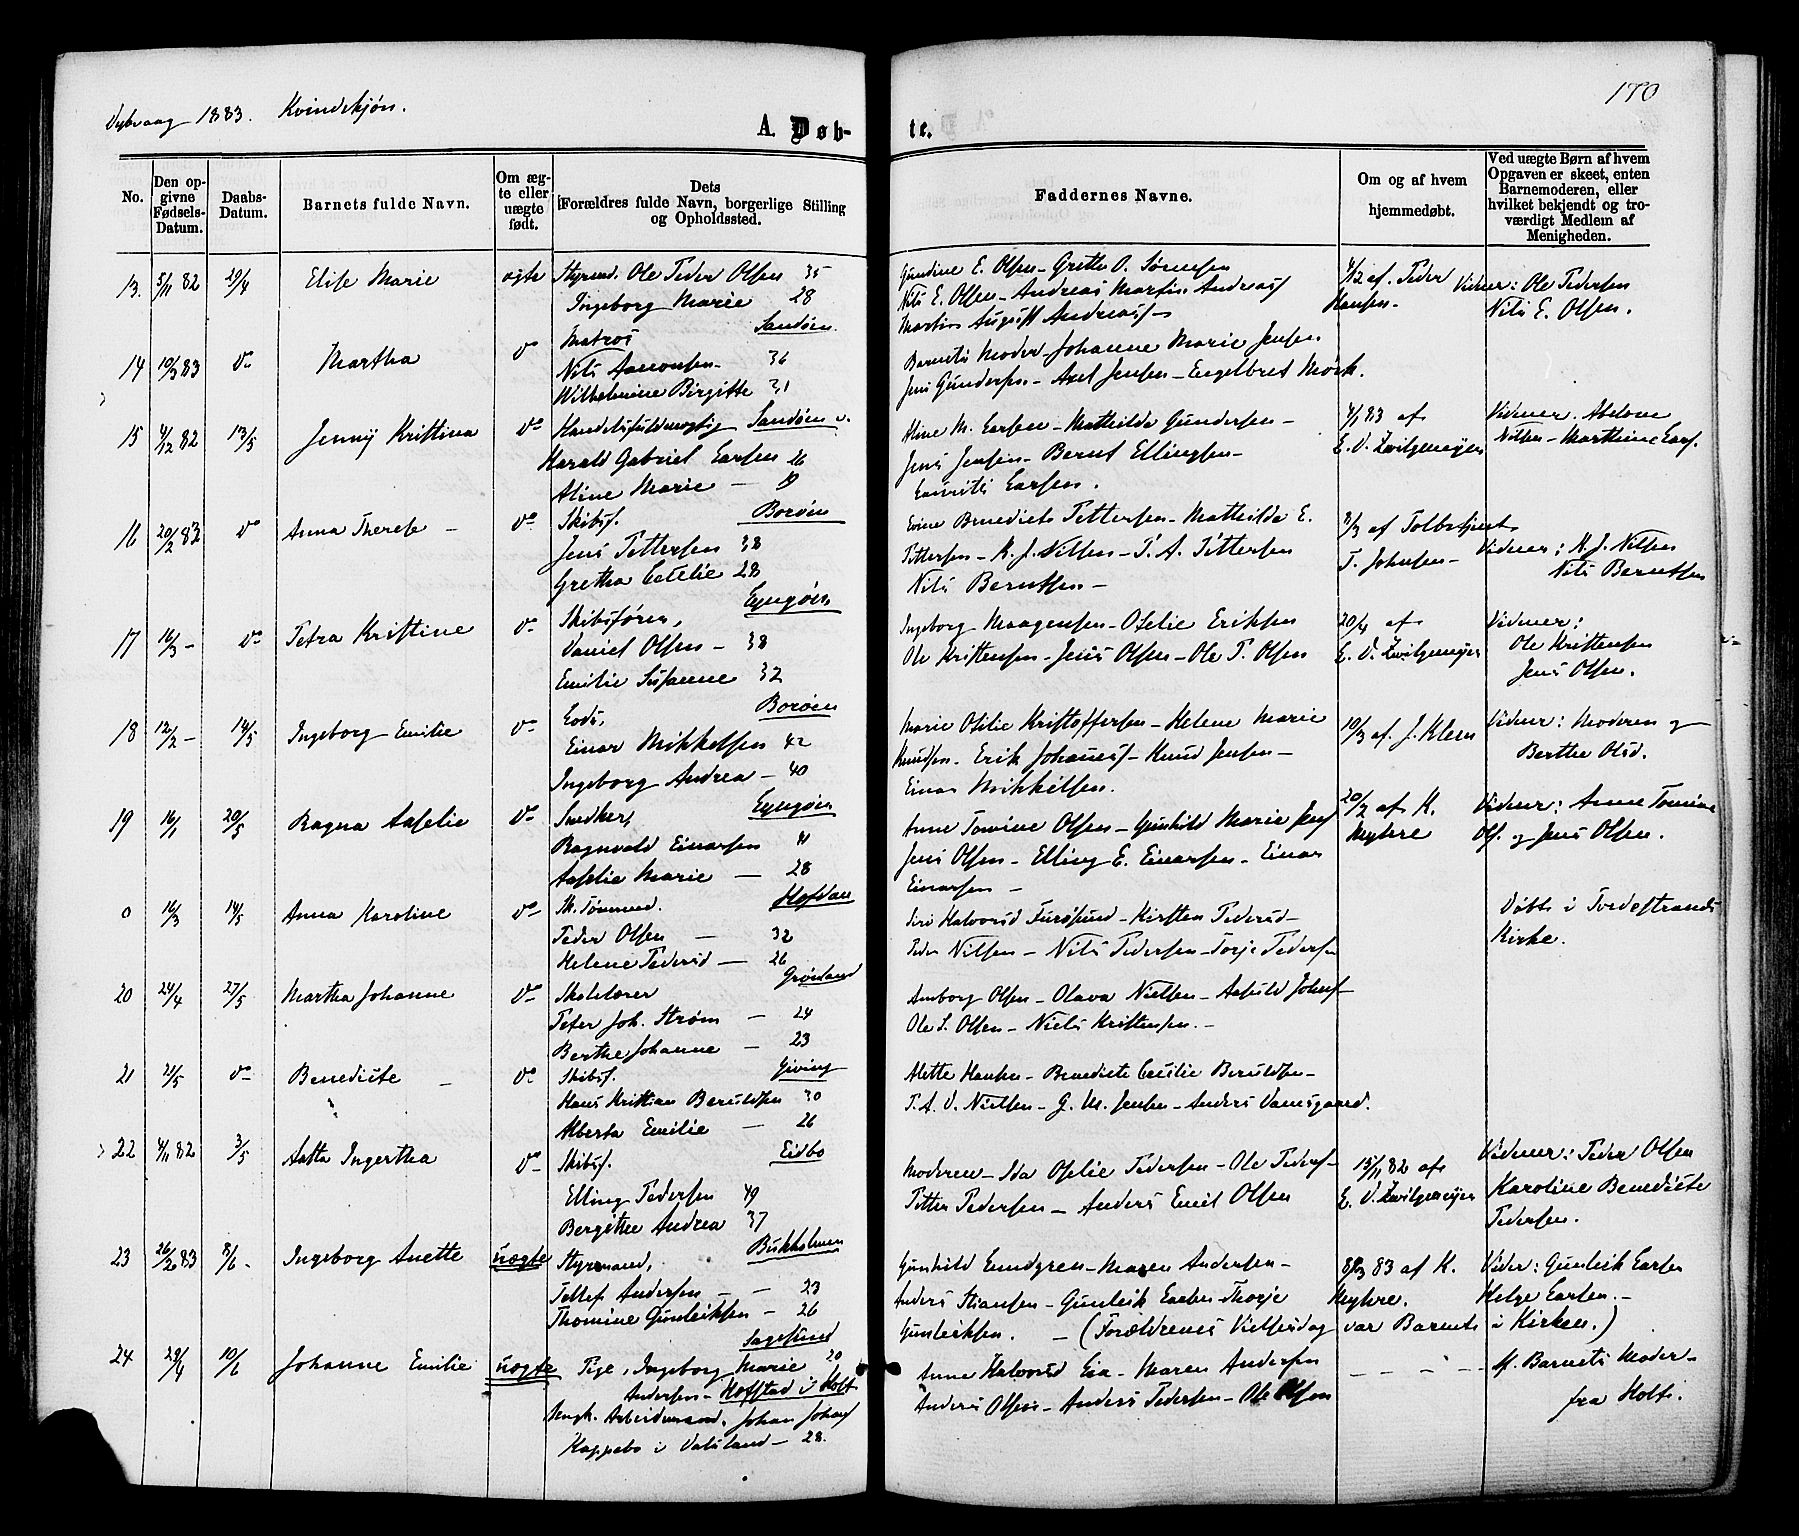 Dybvaag 1883. Kvindekjøn.
170
A. Døb-
te.
No.
Den op-
givne
Fødsels-
Datum.
Daabs-
Datum.
Barnets fulde Navn.
Om æg-
te eller
uægte
født.
Dets
Forældres fulde Navn, borgerlige Stilling
og Opholdssted.
Faddernes Navne.
Om og af hvem
hjemmedøbt.
Ved uægte Børn af hvem
Opgaven er skeet, enten
Barnemoderen, eller
hvilket bekjendt og tro-
værdigt Medlem af
Menigheden.
13. 5/11 82 29/4 Elise Marie ægte Styrmd. Ole Peder Olsen 35 Gundine E. Olsen - Grethe O. Sørensen 4/12 af Peder Vidner: Ole Pedersen
Ingeborg Marie 28 Nils E. Olsen - Andreas Martin Andreas Hansen - Nils E. Olsen.
Sandøen Martin August Andreass -
14 10/3 83 do Martha do Matros
Nils Aanonsen - 36 Barnets Moder - Johanne Marie Jensen
Wilhelmine Birgitte 31 Jens Gundersen - Axel Jensen - Engelbret Mørk.
15 4/12 82 13/5 Jenny Kristina do Handelsfuldmægtig Sandøen Aline M. Larsen - Mathilde Gundersen - 4/1 83 af Vidner. Abelone
Harald Gabriel Larsen 26 Jens Jensen - Bernt Ellingsen - E. V. Zwilgmeyer Nilsen - Marthine Lars.
Aline Marie - 19 Laurits Larsen.
16 20/2 83 do Anna Therese - do Skibsf. Borøen Benedicte Pettersen - Mathilde E. 8/3 af Toldbetjent
Jens Pettersen 38 Pettersen - K. J. Nilsen - P. A. Pettersen T. Johnsen - Vidner: K. J. Nilsen
Gretha Cecilie 28 Nils Berntsen - Nils Berntsen
17 16/3 - do Petra Kristine do Skibsfører, Lyngøen Ingeborg Maagensen - Ofelie Eriksen 20/4 af Vidner:
Daniel Olsen - 38 Ole Kristensen - Jens Olsen - Ole P. Olsen E. V. Zwilgmeyer Ole Kristensen
Emilie Susanne 32 Jens Olsen.
18 12/2 - 14/5 Ingeborg Emilie do Lods, Borøen Marie Ofilie Kristoffersen - Helene Marie 19/3 af. J. Klem Vidner: Moderen og
Einar Mikkelsen 42 Knudsen - Erik Johannes - Knud Jensen - Berthe Olsd.
Ingeborg Andrea - 40 Einar Mikkelsen.
19 16/1 20/5 Ragna Aaselie do Snedker, Lyngøen Anne Tomine Olsen - Gunhild Marie Jens 20/2 af K. Vidner: Anne Tomine
Ragnvald Einarsen 41 Jens Olsen - Elling E. Einarsen - Einar Myhre Ols. og Jens Olsen.
Aaselie Marie - 28 Einarsen -
0 16/3 14/5 Anna Karoline do Sk. Tømmmd. Hofdan Siri Halvorsd Furøsund - Kirsten Pedersd - Døbt i Tvedestrands
Peder Olsen - 32 Peder Nilsen - Nils Pedersen - Torje Pedersen Kirke.
Helene Pedersd - 26
20 24/4 27/5 Martha Johanne do Skolelærer Grønland Amborg Olsen - Olava Nielsen - Aasuld Johns -
Peter Joh. Strøm - 24 Ole S. Olsen - Niels Kristensen. -
Berthe Johanne - 23
21 21/5 do Benedicte - do Skibsf. Giving Alette Hansen - Benedicte Cecilie Beruldsen -
Hans Kristian Beruldsen 30 P. A. V. Nielsen - G. M. Jensen - Anders Vamsgaard.
Alberta Emilie - 26
22 4/11 82 3/5 Aatta Ingertha do Skibsf. Eidbo Moderen - Ida Ofelie Pedersen - Ole Peders - 15/11 82 af Vidner: Peder Olsen
Elling Pedersen 49 Petter Pedersen - Anders Emil Olsen E. V. Zwilgmeyer Karoline Benedicte
Bergitte Andrea 37 Pedersen.
23 26/2 83 8/6 - Ingeborg Anette uægte Styrmand, Bukholmen Gunhild Lundgren - Maren Andersen - 8/3 83 af K. Vidner: Gunleik Larsen
Tellef Andersen - 23 Anders Stiansen - Gunleik Larsen - Thorje Myhre. Helge Larsen. -
Thomine Gunleiksen - 26 Gunleiksen. - (Forældrenes Vielsesdag var Barnets i Kirken.)
24 29/4 10/6 Johanne Emilie uægte Sagesund
Pige, Ingeborg Marie 20 Anne Halvorsd Eia - Maren Andersen - - - - Af Barnets Moder -
Andersen - Hofstad i Holt Anders Olsen - Anders Pedersen - Ole Olsen fra Holt.
Ungk. Arbeidsmand, Johan Johns
Kappebo i Valsland - 28.